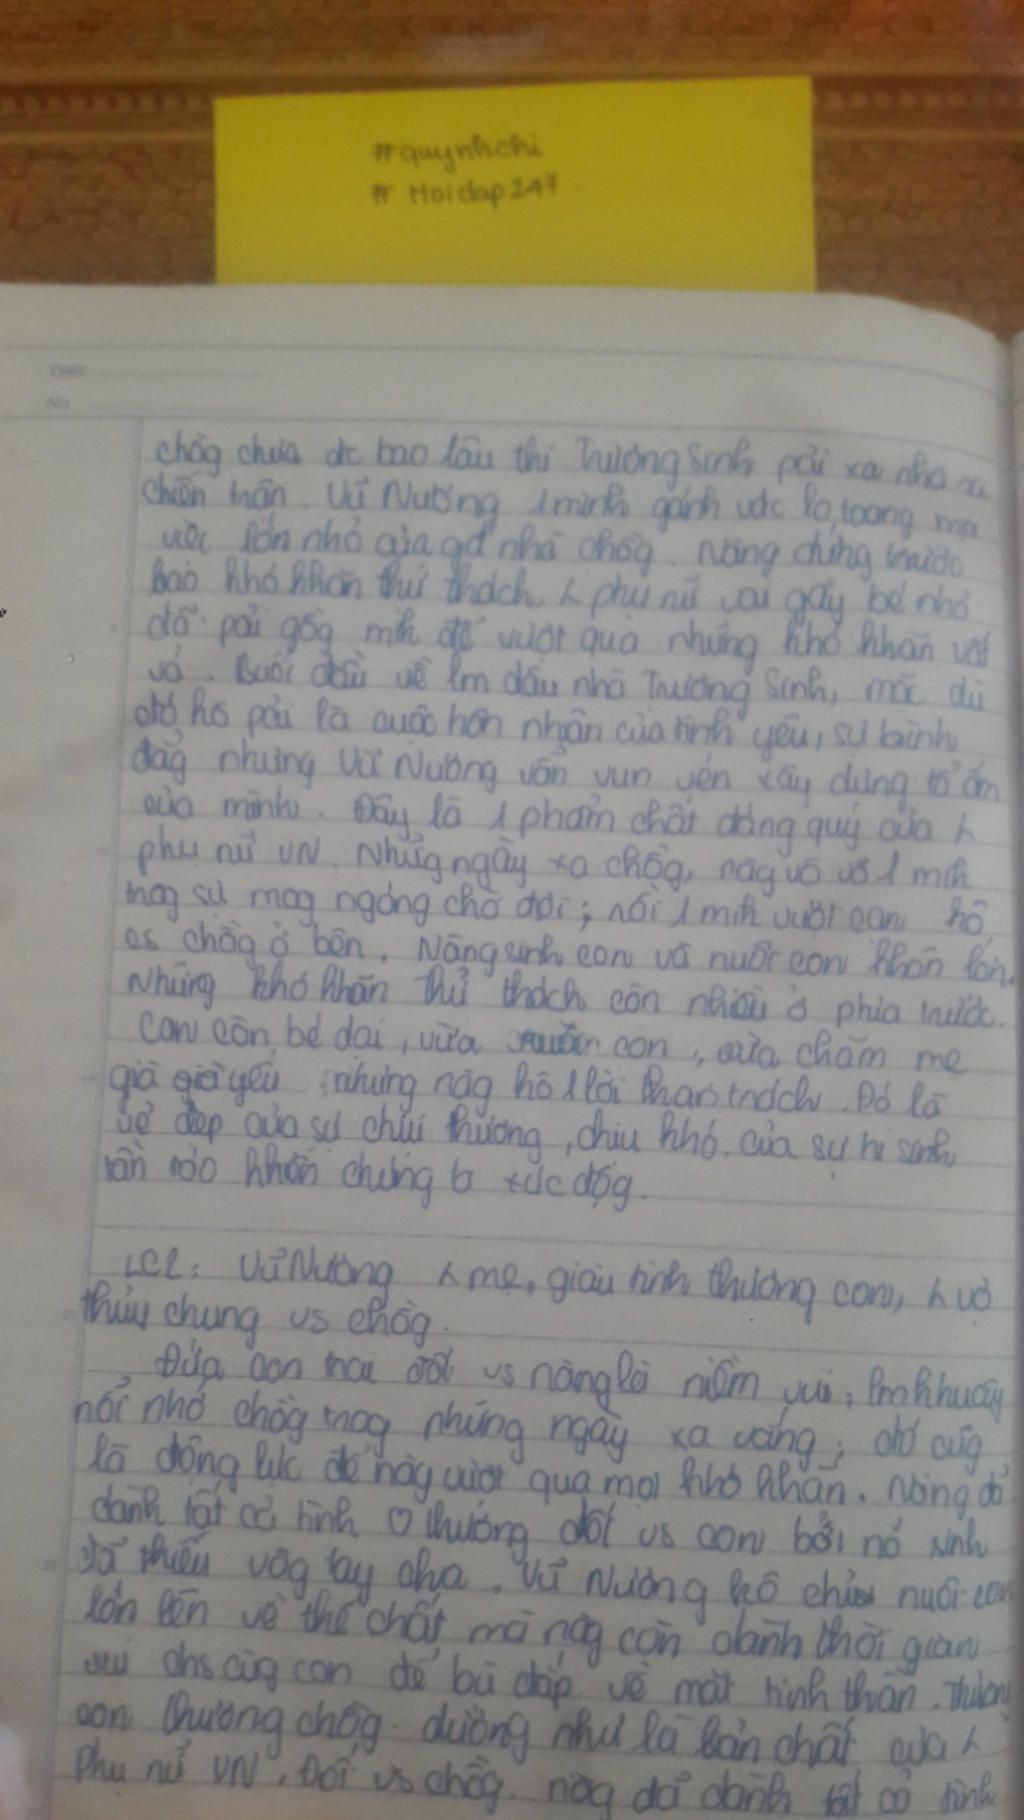 #quynhchi
#Hoidap247
Date
No.
chồg chưa đc bao lâu thì Trương Sinh pải xa nhà ra
chiến trận. Vũ Nương 1 mình gánh vác lo toang mọi
việc lớn nhỏ gia gđ nhà chồg. Nàng đứng trước
bao khó khăn thử thách. phụ nữ vai gầy bé nhỏ
đã pải gồg mh để vượt qua những khó khăn vất
vả. Buổi đầu về lm dâu nhà Trương Sinh, mặc dù
đó hô pải là cuộc hôn nhân của tình yêu, sự bình
đẳg nhưng Vũ Nương vẫn vun vén xây dựng tổ ấm
của mình. Đây là 1 phẩm chất đáng quý của
phụ nữ VN. Nhữg ngày xa chồg, nàg vò võ 1 mh
trog sự mog ngóng chờ đợi; nỗi 1 mh vượt cạn hô
cs chồg ở bên. Nàng sinh con và nuôi con khôn lớn.
Những khó khăn thử thách còn nhiều ở phía trước.
Con còn bé dại, vừa con, vừa chăm mẹ
già già yếu nhưng nàg hô 1 lời than trách. Đó là
vẻ đẹp của sự chịu thương, chịu khó, của sự hi sinh
tần tảo khiến chúng ta xúc độg.
LC2: Vũ Nương mẹ, giàu tình thương con, vợ
thủy chung vs chồg.
Đứa con trai đối vs nàng là niềm vui, lm khuây
nỗi nhớ chồg trog những ngày xa vắng; đó cũg
là động lực để nàg vượt qua mọi khó khăn. Nàng đã
dành tất cả tình thương đối vs con bởi nó sinh
đã thiếu vòg tay cha. Vũ Nương hô chỉ nuôi con
lớn lên về thể chất mà nàg còn dành thời gian
vui chs cùg con để bù đắp về mặt tinh thần. Thương
con thương chồg dường như là bản chất của
phụ nữ VN. Đối vs chồg, nàg đã dành tất cả tình